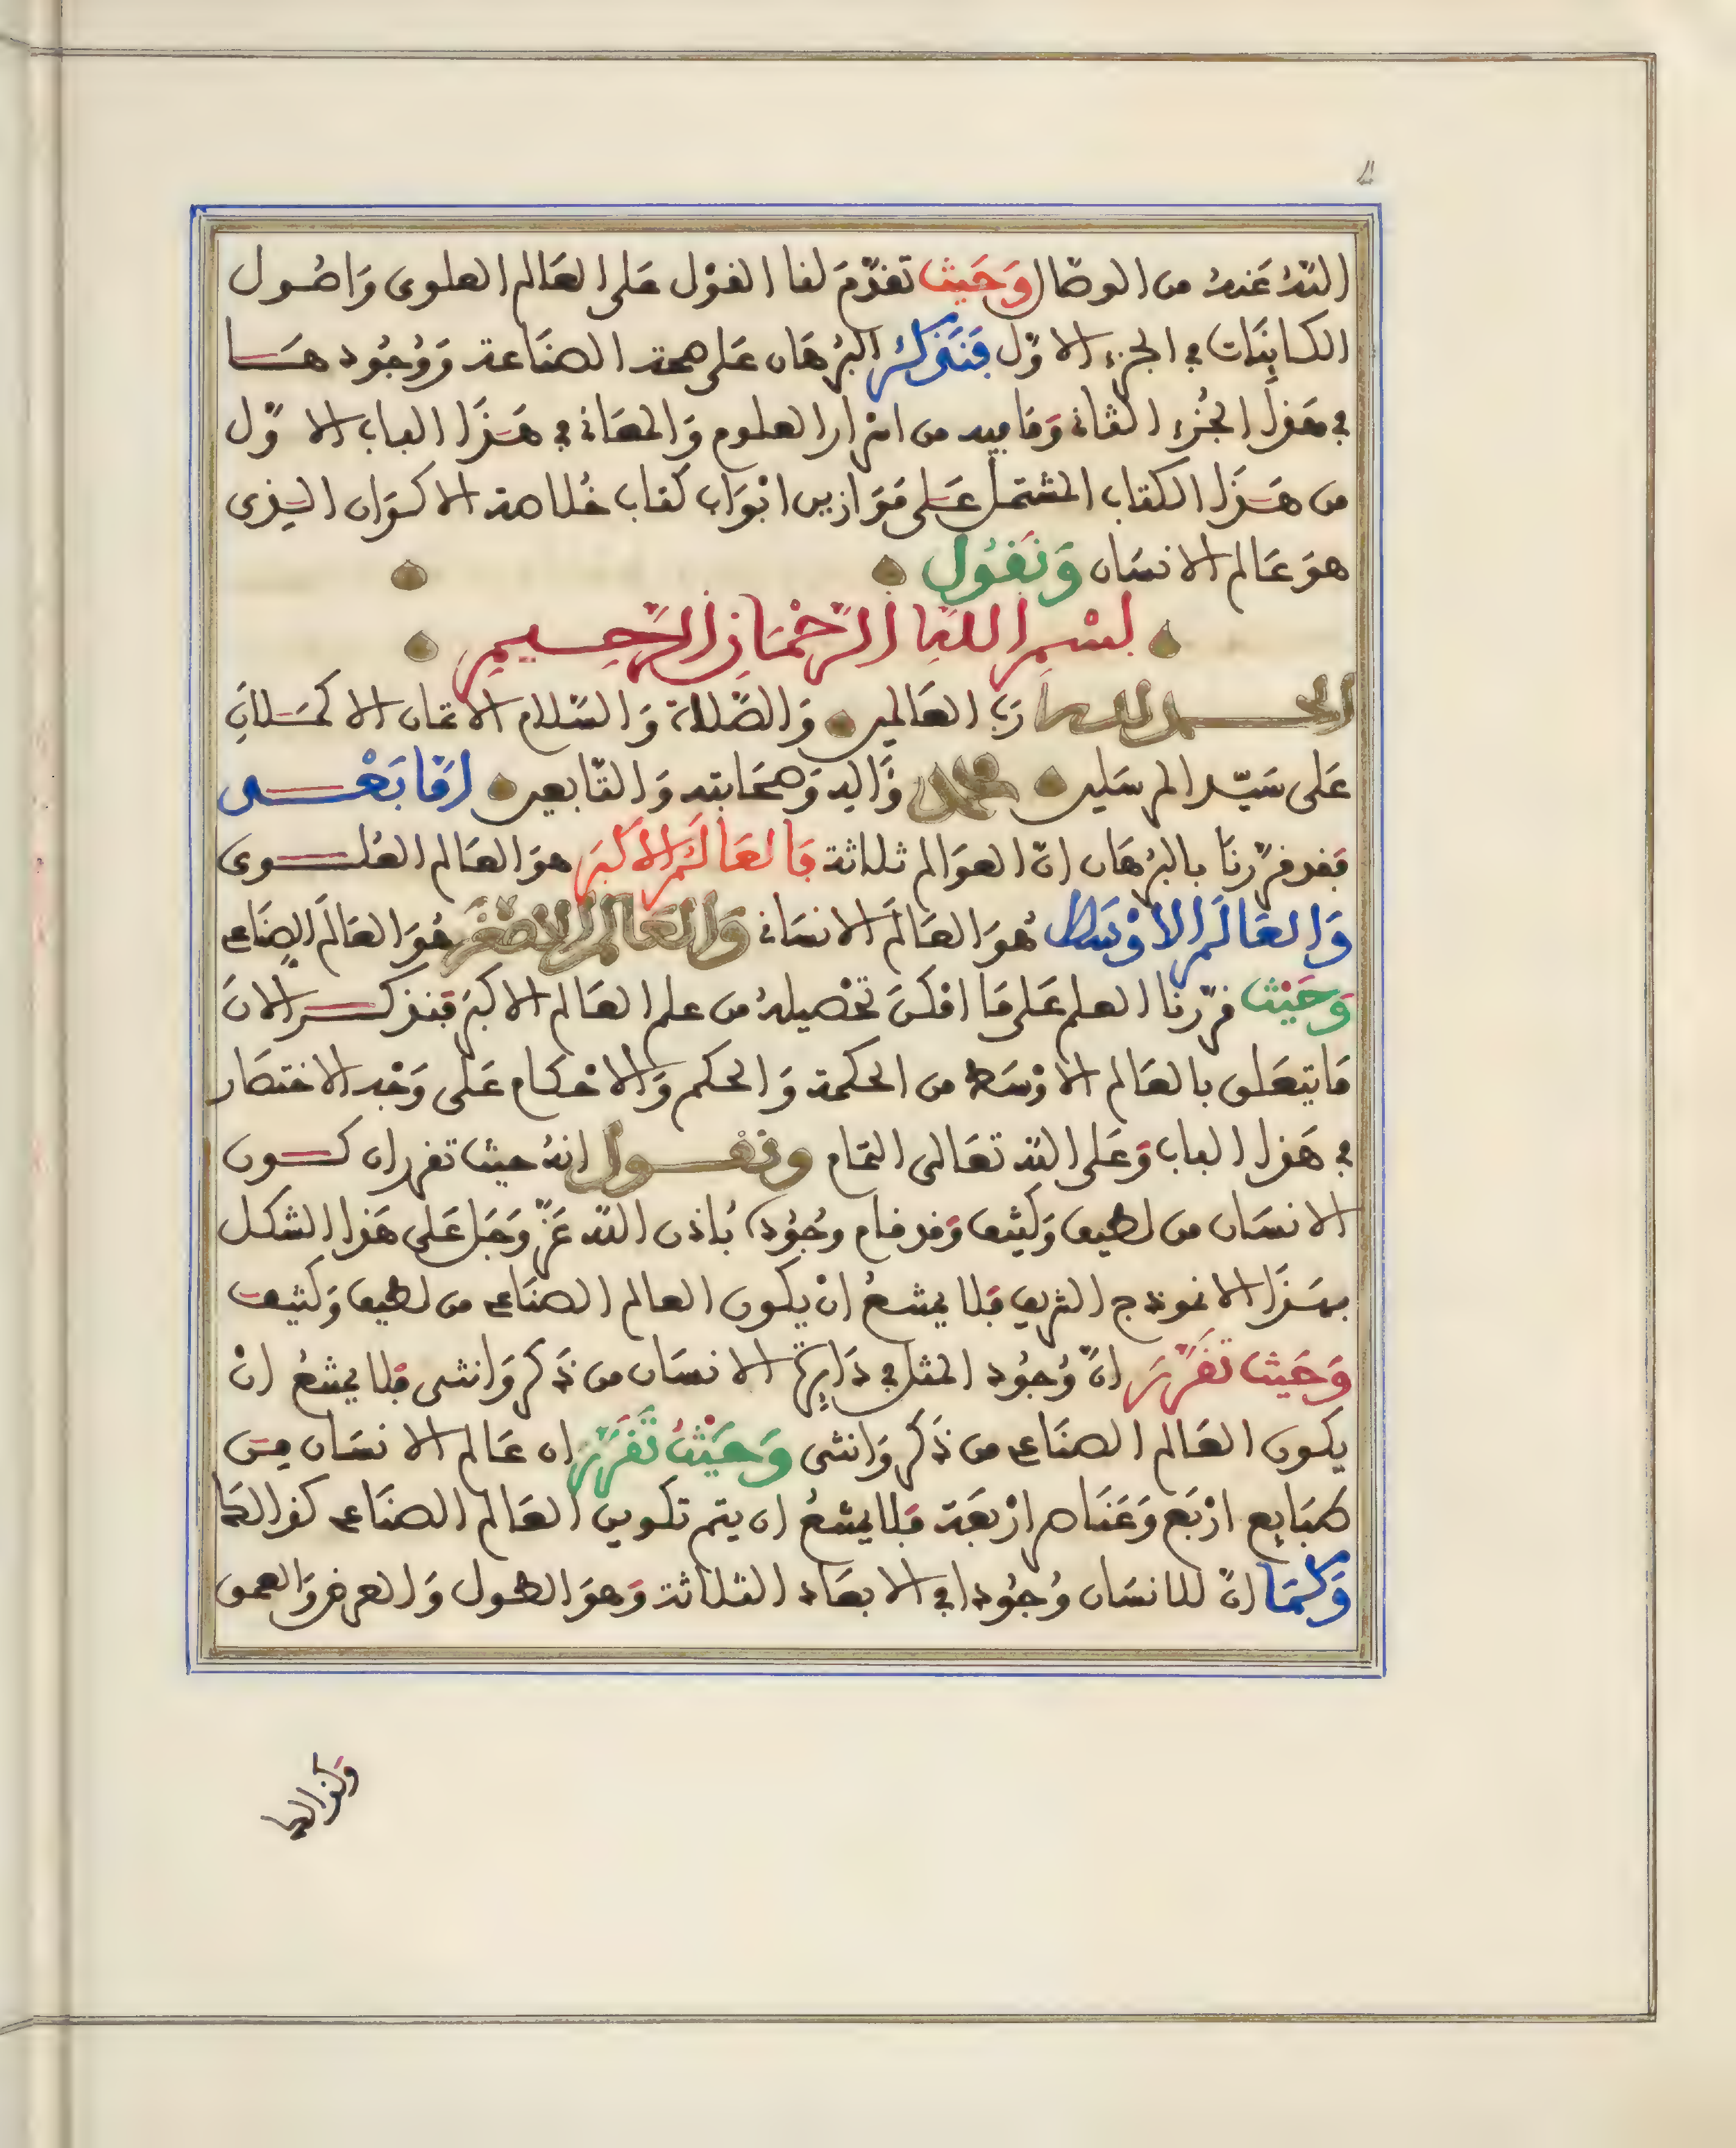 اللّهُ عَنهُ من الوصَال وَحَيث تقدّمَ لنا القوْل عَلى العَالم العلوى وَاصُول
الكاينَات في الجزء الاوّل فَنَذكُر البُرهَان عَلى صحة الصنَاعة وَوُجُودهَا
في هَذا الجُزء الثاني وَمَا فيه من اسْرار العلوم وَالمعَاني في هَذَا الباب الاوّل
من هَذَا الكتاب المشتمل عَلى مَوَازين ابْوَاب كتاب خُلاصة الاكوَان الذِى
هوَ عَالم الانسَان وَنَقُول
بسْمِ اللّهِ الرَّحْمَانِ الرَّحِيمِ
الحمد لله رَبّ العَالمين وَالصَّلاة وَالسَّلام الاتمَان الاكمَلانِ
عَلى سَيّد المرسَلين محمد وَّالِه وَصحَابته وَالتّابعين امَّا بَعْد
فقد قرّرنَا بالبُرهَان انّ العوَالم ثلاثة فَالعَالَمُ الاكبَر هوَ العَالم العُلوى
وَالعَالَم الاوْسَط هُوَ العَالَم الانسَاني وَالعَالَم الاصْغَر هُوَ العَالَم الصنَاعي
وَحَيْث قرّرنا العلم عَلى مَا امْكنَ تحْصيلهُ من علم العَالم الاكبَر فنذكر الانَ
مَا يتعَلق بالعَالم الاوْسَط من الحكمة وَالحكم وَالاحْكام عَلى وَجْه الاختصَار
في هَذا الباب وَعَلى اللّه تعَالى التمَام ونقول انهُ حيث تقرر ان كون
الانسَان من لطيف وَكثيف وَقد قام وجُوُده بُاذن اللّه عَزّ وَجَل عَلى هَذا الشكل
بهَذَا الانموذج الشريف فلا يمتنعُ انْ يكون العالم الصنَاعي من لطيف وَكثيف
وَحَيث تقَرّرَ انّ وُجُود المثل في دَايرَة الانسَان من ذَكر وَانثى فلا يمتنعُ انْ
يكون العَالم الصنَاعي من ذَكر وَانثى وَحَيْثُ تَقَرَّر ان عَالم الانسَان مِن
طبَايع ارْبَع وَعَنَاصر ارْبعَة فلا يمتنعُ ان يتم تكوين العَالم الصنَاعي كذالك
وَكمَا انّ للانسَان وُجُودا في الابعَاد الثلاثة وَهوَ الطول وَالعرض وَالعمق
وكذالك